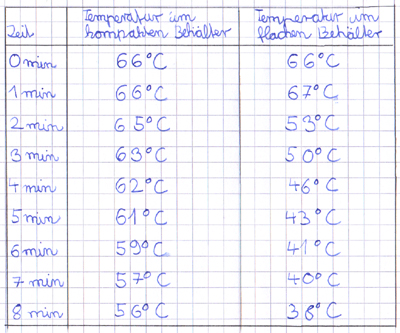 Zeit Temperatur im kompakten Behälter Temperatur im flachen Behälter
0 min 66°C 66°C
1 min 66°C 67°C
2 min 65°C 53°C
3 min 63°C 50°C
4 min 62°C 46°C
5 min 61°C 43°C
6 min 59°C 41°C
7 min 57°C 40°C
8 min 56°C 38°C